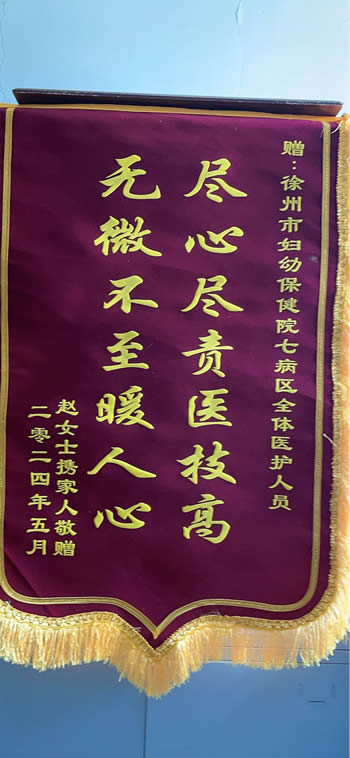 赠：徐州市妇幼保健院七病区全体医护人员
尽心尽责医技高
无微不至暖人心
赵女士携家人敬赠
二零二四年五月